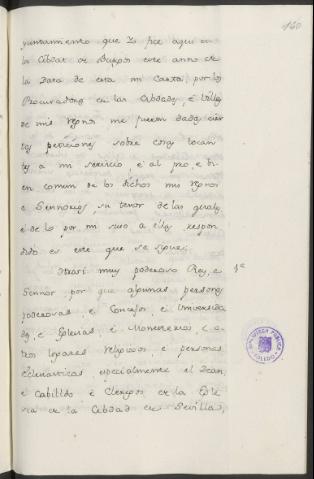 160
yuntamiento que Yo fice aqui en
la Cibdat de Burgos este anno de
la Data de esta mi Carta, por los
Procuradores de las Cibdades, é Villas
de mis regnos me fueron dadas cier
tas peticiones sobre cosas tocan
tes a mi servicio, é al pro, e bi
en comun de los dichos mis regnos
e Sennorios, su tenor de las quales
é de lo por mi suso a ellas respon
dido es este que se sigue.
muy poderoso Rey, e
1ª
Sennor por que algunas personas
poderosas, é Concejos, é Universida
des, e Iglesias, é Monesterios, é o
tros logares Religiosos, e personas
Eclesiasticas especialmente el Dean,
e Cabilldo é Clerigos de la Igle
sia de la Cibdad de Sevilla,
BIBLIOTECA PUBLICA
TOLEDO